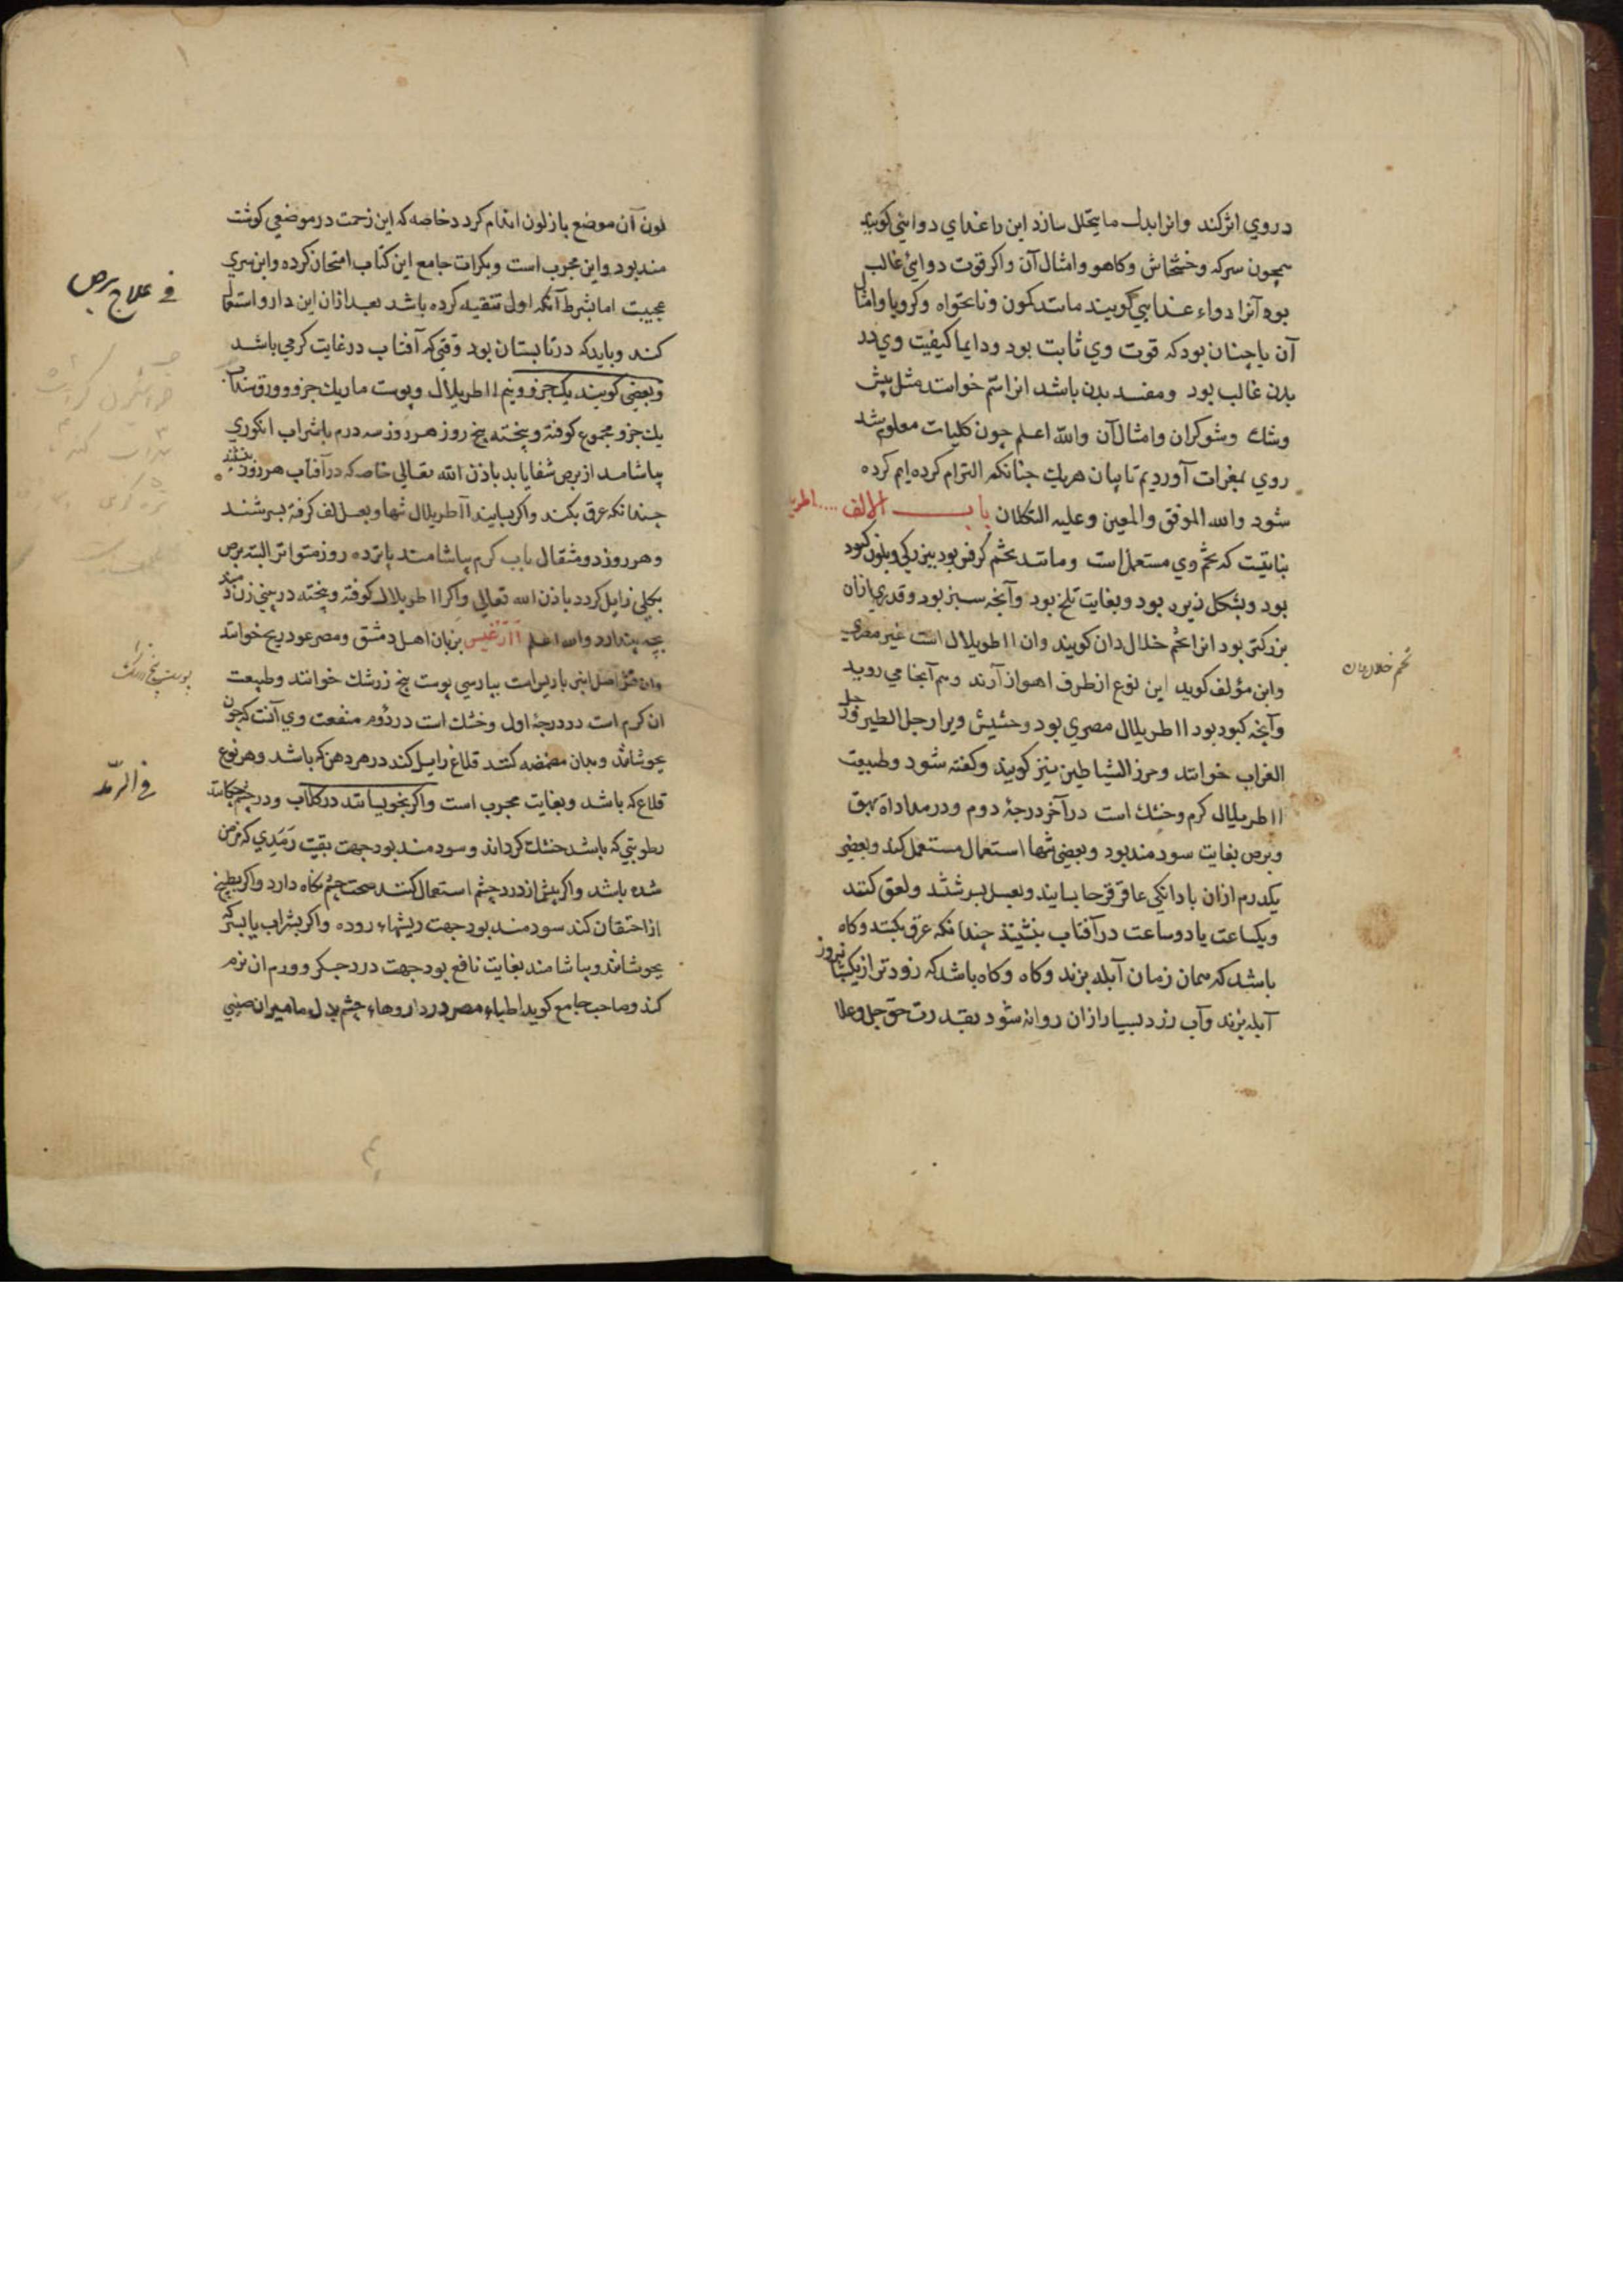 در وي اثر کند وانرا بدل ما يتحلل سازد اين را غداي دوايي کويند
همچون سرکه وخشخاش وکاهو وامثال آن واکر قوت دوايئ غالب
بود آنرا دواء غدايي کويند مانند کمون ونانخواه وکرويا وامثال
آن يا چنان بود که قوت وي ثابت بود ودايما کيفيت وي در
بدن غالب بود ومفسد بدن باشد انرا سم خوانند مثل بيش
وشوکران وامثال آن والله اعلم چون کليات معلوم شد
روي بمفردات آورديم تا بيان هريک چنانکه التزام کرده ايم کرده
شود والله الموفق والمعين وعليه التکلان باب الالف
نباتيست که تخم وي مستعمل است ومانند تخم کرفس بود ببزرکي وبلون کبود
بود وبشکل زيره بود وبغايت تلخ بود وآنچه سبز بود وقدري ازان
بزرکتر بود انرا تخم خلال دان کويند وان ااطريلال است غير مصري
وابن مؤلف کويد اين نوع از طرف اهواز آرند وهم آنجا مي رويد
وآنچه کبود بود ااطريلال مصري بود وحشيش ويرا رجل الطير ورجل
الغراب خوانند وحرز الشياطين نيز کويند وکفته شود وطبيعت
ااطريلال کرم وخشک است در آخر درجۀ دوم ودر مداواة بهق
وبرص بغايت سودمند بود وبعضي تنها استعمال مستعمل کند وبعضي
يکدرم ازان با دانکي عاقرقرحا بسايند وبعسل بسرشند ولعق کنند
ويکساعت يا دو ساعت در آفتاب بنشيند چندانکه عرق بکند وکاه
باشد که همان زمان آبله بزند وکاه وکاه باشد که زودتر از يکشبانروز
آبله بزند وآب زرد بسيار ازان روانه شود بقدرت حق جل وعلا
تخم خلال دان
لون آن موضع باز لون اندام کردد خاصه که اين زحمت در موضعي کوشت
مند بود واين مجرب است وبکرات جامع اين کتاب امتحان کرده واين سري
عجيبت اما بشرط آنکه اول تنقيه کرده باشد بعد ازان اين دارو استعمال
کند وبايد که در تابستان بود وقتي که آفتاب در غايت کرمي باشد
وبعضي کويند يک جزو ونيم ااطريلال وپوست مار يک جزو وورق سداب
يک جزو مجموع کوفته وبيخته پنج روز هر روز سه درم با شراب انکوري
بياشامد از برص شفا يابد باذن الله تعالي خاصه که در آفتاب هر روز بنشيند
چندانکه عرق بکند واکر بسايند ااطريلال تنها وبعسل کف کرفته بسرشند
وهر روز دو مثقال باب کرم بياشامند پانزده روز متواتر البته برص
بکلي زايل کردد باذن الله تعالي واکر ااطريلال کوفته وبيخته در بيني زن دمند
بچه بيندازد والله اعلم آآرغيس بزبان اهل دمشق ومصر عود ريح خوانند
وان قشر اصل انبرباريس است بپارسي پوست بيخ زرشک خوانند وطبيعت
ان کرم است در درجۀ اول وخشک است در دوم منفعت وي آنست که چون
بجوشانند وبدان مضمضه کنند قلاع زايل کند در هر دهن که باشد وهر نوع
قلاع که باشد وبغايت مجرب است واکر بخويسانند در کلاب ودر چشم چکانند
رطوبتي که باشد خشک کرداند وسودمند بود جهت بقيت رمدي که مزمن
شده باشد واکر پيش از درد چشم استعمال کنند صحت چشم نکاه دارد واکر بطبيخ
ازاحتقان کند سودمند بود جهت ريشهاء روده واکر بشراب يا بسرکه
بجوشانند وبياشامند بغايت نافع بود جهت درد جکر وورم ان نرم
کند وصاحب جامع کويد اطباء مصر در داروهاء چشم بدل ماميران صيني
في علاج برص
پوست بيخ زرشک
في الرمد